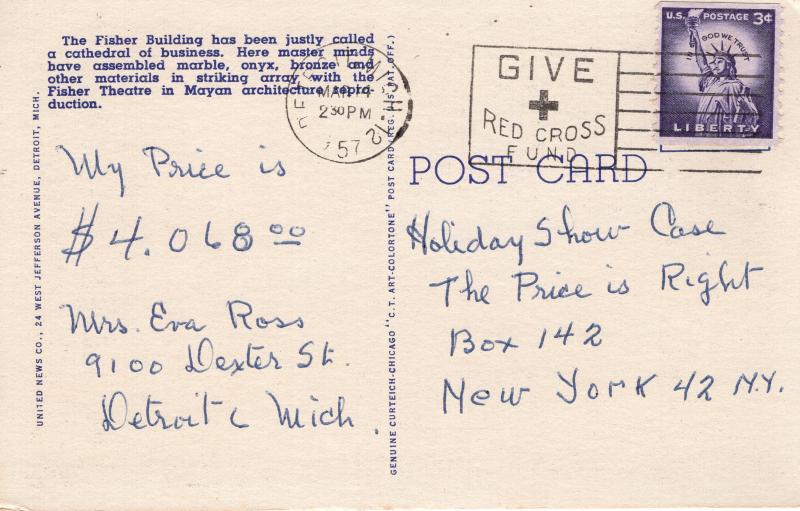 The Fisher Building has been justly called
a cathedral of business. Here master minds
have assembled marble, onyx, bronze and
other materials in striking array, with the
Fisher Theatre in Mayan architecture repro-
duction.
My Price is
$4.068 00
Mrs. Eva Ross
9100 Dexter St.
Detroit 6 Mich.
UNITED NEWS CO., 24 WEST JEFFERSON AVENUE, DETROIT, MICH.
GENUINE CURTEICH-CHICAGO "C.T. ART-COLORTONE" POST CARD (REG. U.S. PAT. OFF.)
MAR 14
2 30 PM
'57
12
GIVE
RED CROSS
FUND
U.S. POSTAGE 3¢
IN GOD WE TRUST
LIBERTY
POST CARD
Holiday Show Case
The Price is Right
Box 142
New York 42 N.Y.